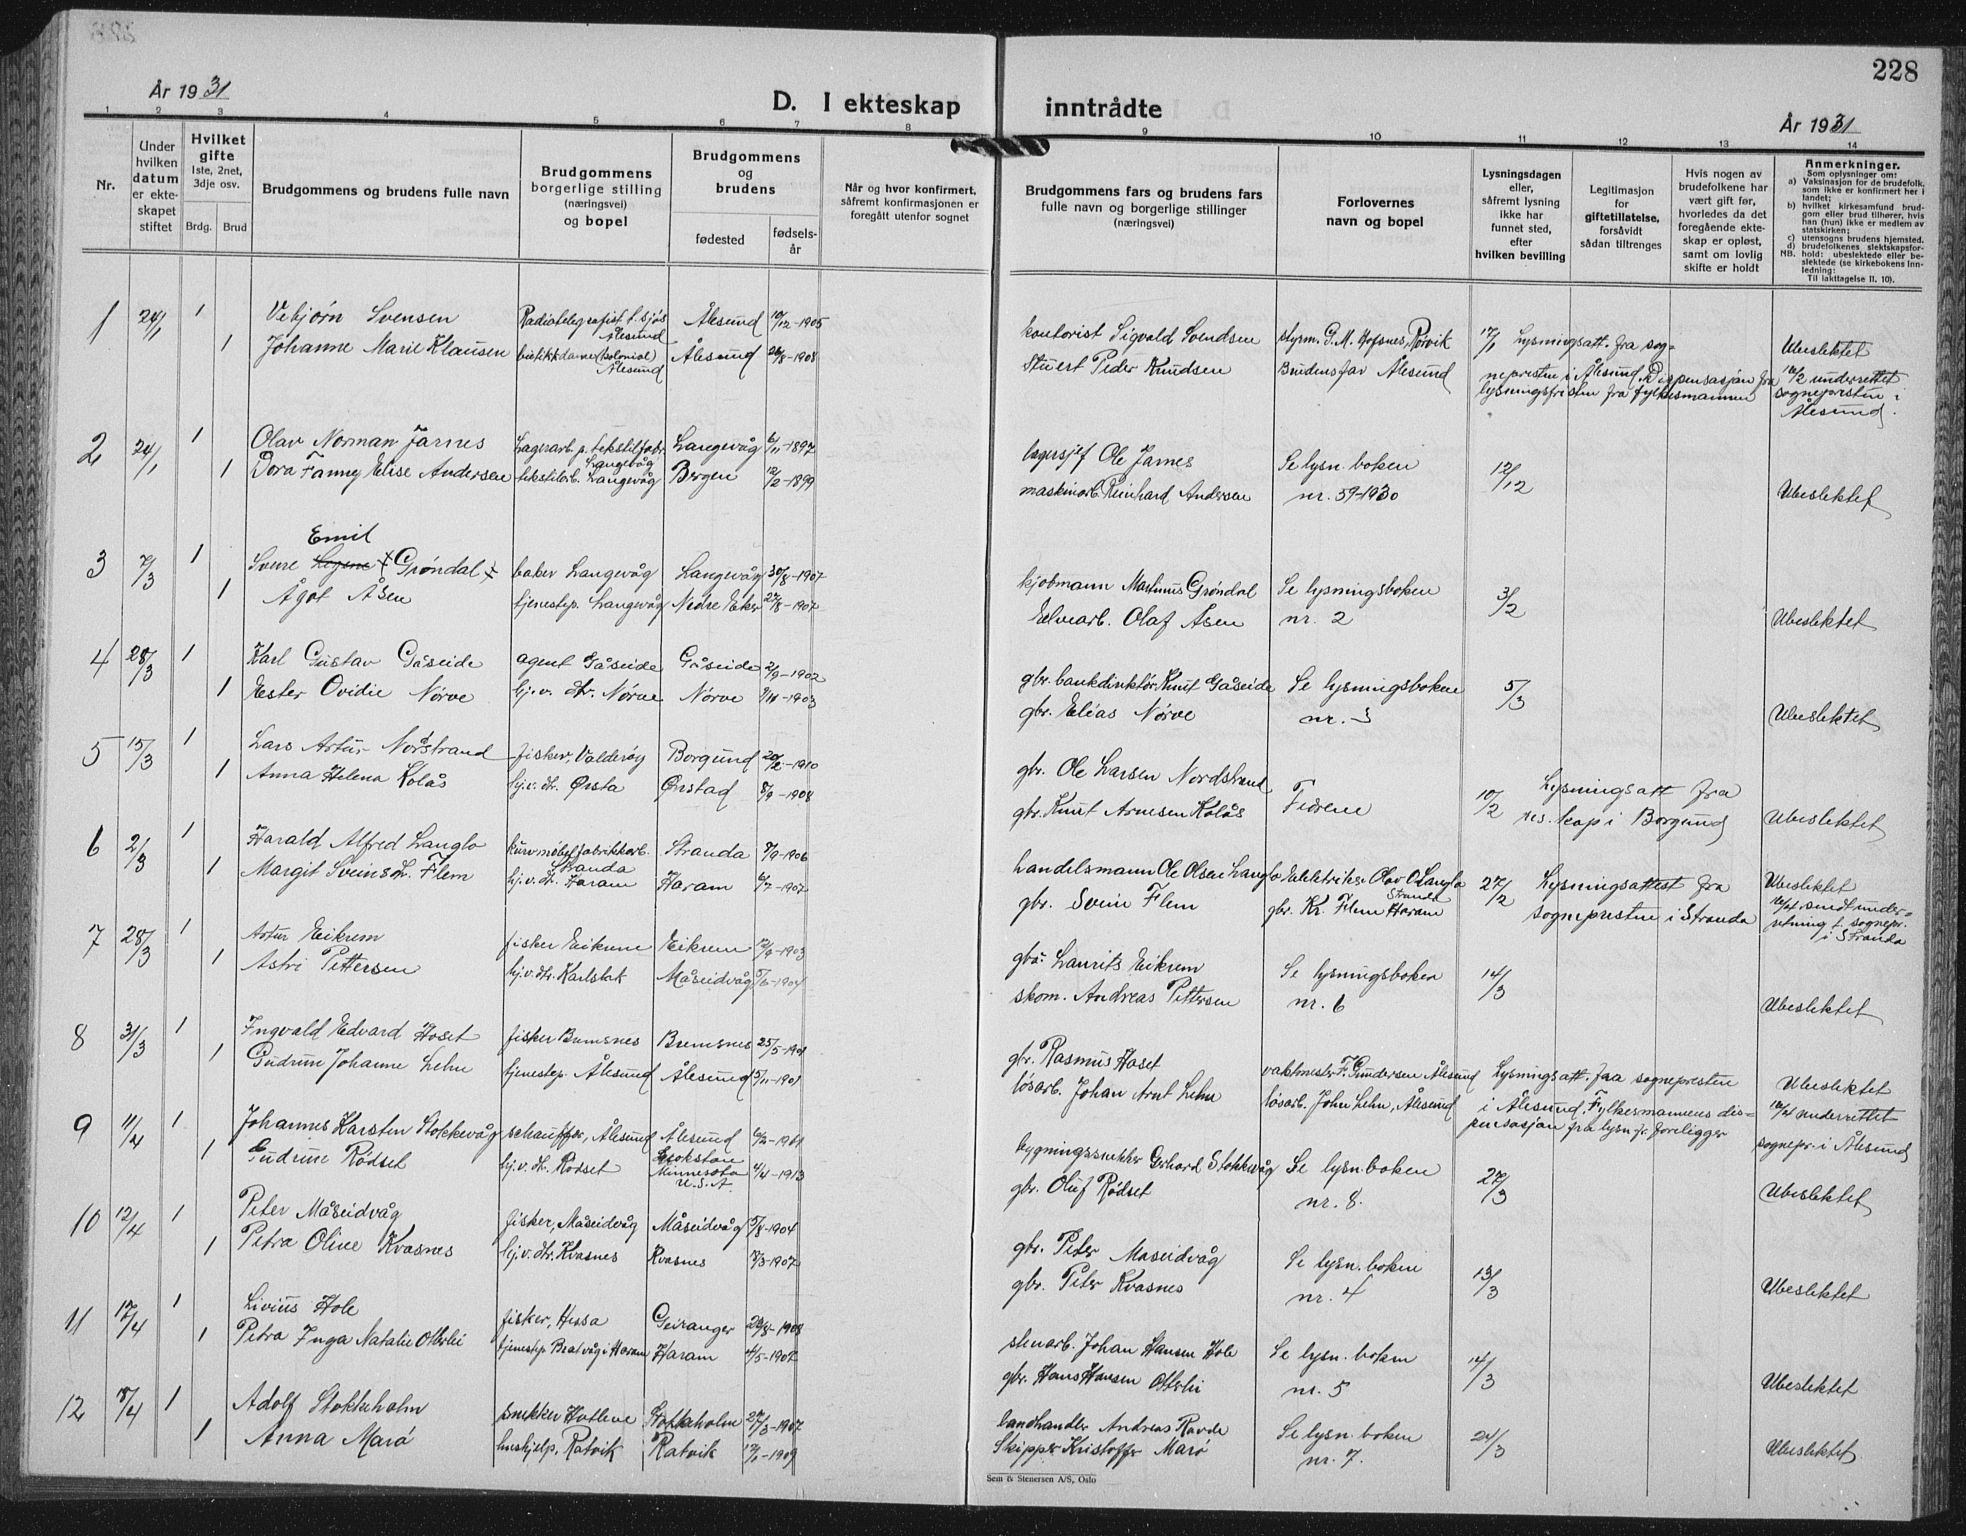 228
År 1931
D. I ekteskap inntrådte
År 1931
1 2 3 4 5 6 7 8 9 10 11 12 13 14
Nr.
Under hvilken datum er ekteskapet stiftet
Hvilket gifte
1ste, 2net, 3dje osv.
Brdg. Brud
Brudgommens og brudens fulle navn
Brudgommens borgerlige stilling (næringsvei) og bopel
Brudgommens og brudens
fødested
fødselsår
Når og hvor konfirmert, såfremt konfirmasjonen er foregått utenfor sognet
Brudgommens fars og brudens fars fulle navn og borgerlige stillinger (næringsvei)
Forlovernes navn og bopel
Lysningsdagen eller, såfremt lysning ikke har funnet sted, efter hvilken bevilling
Legitimasjon for giftetillatelse, forsåvidt sådan tiltrenges
Hvis nogen av brudefolkene har vært gift før, hvorledes da det foregående ekteskap er opløst, samt om lovlig skifte er holdt
Anmerkninger.
Som oplysninger om:
a) Vaksinasjon for de brudefolk, som ikke er konfirmert her i landet;
b) hvilket kirkesamfund brudgom eller brud tilhører, hvis han (hun) ikke er medlem av statskirken;
c) utensogns brudens hjemsted.
d) brudefolkenes slektskapsforhold: ubeslektede eller beslektede (se kirkebokens innledning:
NB.
Til iakttagelse II. 10).
1 24/1 1 Vebjørn Svensen Radiotelegrafist t. sjøs Ålesund Ålesund 10/12-1905 kontorist Sigvald Svendsen styrm. G. M. Hofsnes, Rørvik 17/1 Lysningsatt. fra sog-
1 Johanne Marie Klausen butikkdame (kolonial) Ålesund Ålesund 26/8-1908 Stuert Peder Knudsen Brudens far Ålesund nepresten i Ålesund. Dispensasjon fra lysningsfristen fra fylkesmannen Ubeslektet
underrettet sognepresten i Ålesund.
2 24/1 1 Olav Norman Jarnes Lagerarb. p. tekstilfabr. Langevåg Langevåg 6/11-1897 lagersjef Ole Jarnes Se lysn. boken 12/12
1 Dora Fanny Elise Andersen tekstilarb. Langevåg Bergen 12/2-1899 maskinarb. Reinhard Andersen nr. 59-1930 Ubeslektet
Emil
3 7/3 1 Sverre Grøndal baker Langevåg Langevåg 30/8-1907 kjøbmann Martinus Grøndal Se lysningsboken 3/2
1 Ågot Åsen tjenestep. Langevåg Nedre Eker 27/8-1907 Elvearb. Olaf Åsen nr. 2 Ubeslektet
4 28/3 1 Karl Gustav Gåseide agent Gåseide Gåseide 2/9-1902 gbr. bankdirektør Knut Gåseide Se lysningsboken 5/3
1 Ester Ovidie Nørve hj. v. dtr. Nørve Nørve gbr. Elias Nørve nr. 3 Ubeslektet
5 15/3 1 Lars Artur Nordstrand fisker, Valderøy Borgund 20/2-1910 gbr. Ole Larsen Nordstrand 10/2 Lysningsatt fra
1 Anna Helena Kolås hj. v. dtr. Ørsta Ørstad 8/9-1908 gbr. Knut Arnesen Kolås Fedrene res. kap i Borgund Ubeslektet
6 2/3 1 Harald Alfred Langlo kurvmøbelfabrikkarb. Stranda Stranda 9/9-1906 handelsmann Ole Olsen Langlo Elektriker Olav O. Langlo Stranda 27/2 Lysningsattest fra Ubeslektet
1 Margit Sveinsdtr. Flem hj. v. dtr. Haram Haram 6/7-1907 gbr. Svein Flem gbr. Kr. Flem Haram sognepresten i Stranda sendt underretning t. sognepr. i Stranda
7 28/3 1 Artur Eikrem fisker Eikrem Eikrem 12/9-1903 gbr. Laurits Eikrem Se lysningsboken 14/3
1 Astri Pettersen hj. v. dtr. Måseidvåg 5/6-1904 skom. Andreas Pettersen nr. 6 Ubeslektet
8 31/3 1 Ingvald Edvard Hoset fisker Bremsnes Bremsnes 25/5-1901 gbr. Rasmus Hoset vaktmester F. Gundersen Ålesund Lysningsatt. fra sognepresten
1 Gudrun Johanne Lehn tjenestep. Ålesund Ålesund 5/11-1901 løsarb. Johan Arnt Lehn løsarb. John Lehn, Ålesund i Ålesund. Fylkesmannens dispensasjon fra lysn. fr. foreligger Ubeslektet
underrettet sognepr. i Ålesund
9 11/4 1 Johannes Karsten Stokkevåg schauffør, Ålesund Ålesund bygningssnekker Gerhard Stokkevåg Se lysn. boken 27/3
1 Gudrun Rødset hj. v. dtr. Rødset Crokston Minnesota U.S.A. 4/4-1913 gbr. Oluf Rødset nr. 8. Ubeslektet
10 12/4 1 Peter Måseidvåg fisker, Måseidvåg Måseidvåg 5/8-1904 gbr. Peter Måseidvåg Se lysn. boken 13/3
1 Petra Oline Kvasnes hj. v. dtr. Kvasnes Kvasnes 7/3-1907 gbr. Peter Kvasnes nr. 4 Ubeslektet
11 17/4 1 Livius Hole fisker, Hessa Geiranger 28/8-1908 stenarb. Johan Hansen Hole Se lysn. boken 14/3
1 Petra Inga Natalie Otterlei tjenestep. Bratvåg i Haram Haram 4/5-1907 gbr. Hans Hansen Otterlei nr. 5 Ubeslektet
12 18/4 1 Adolf Stokkeholm snekker Stokkeholm 27/3-1907 landhandler Andreas Ravde Se lysn. boken 24/3
1 Anna Marø hushjelp, Ratvik Ratvik 17/1-1909 Skipper Kristoffer Marø nr. 7. Ubeslektet
Sem & Stenersen A/S, Oslo